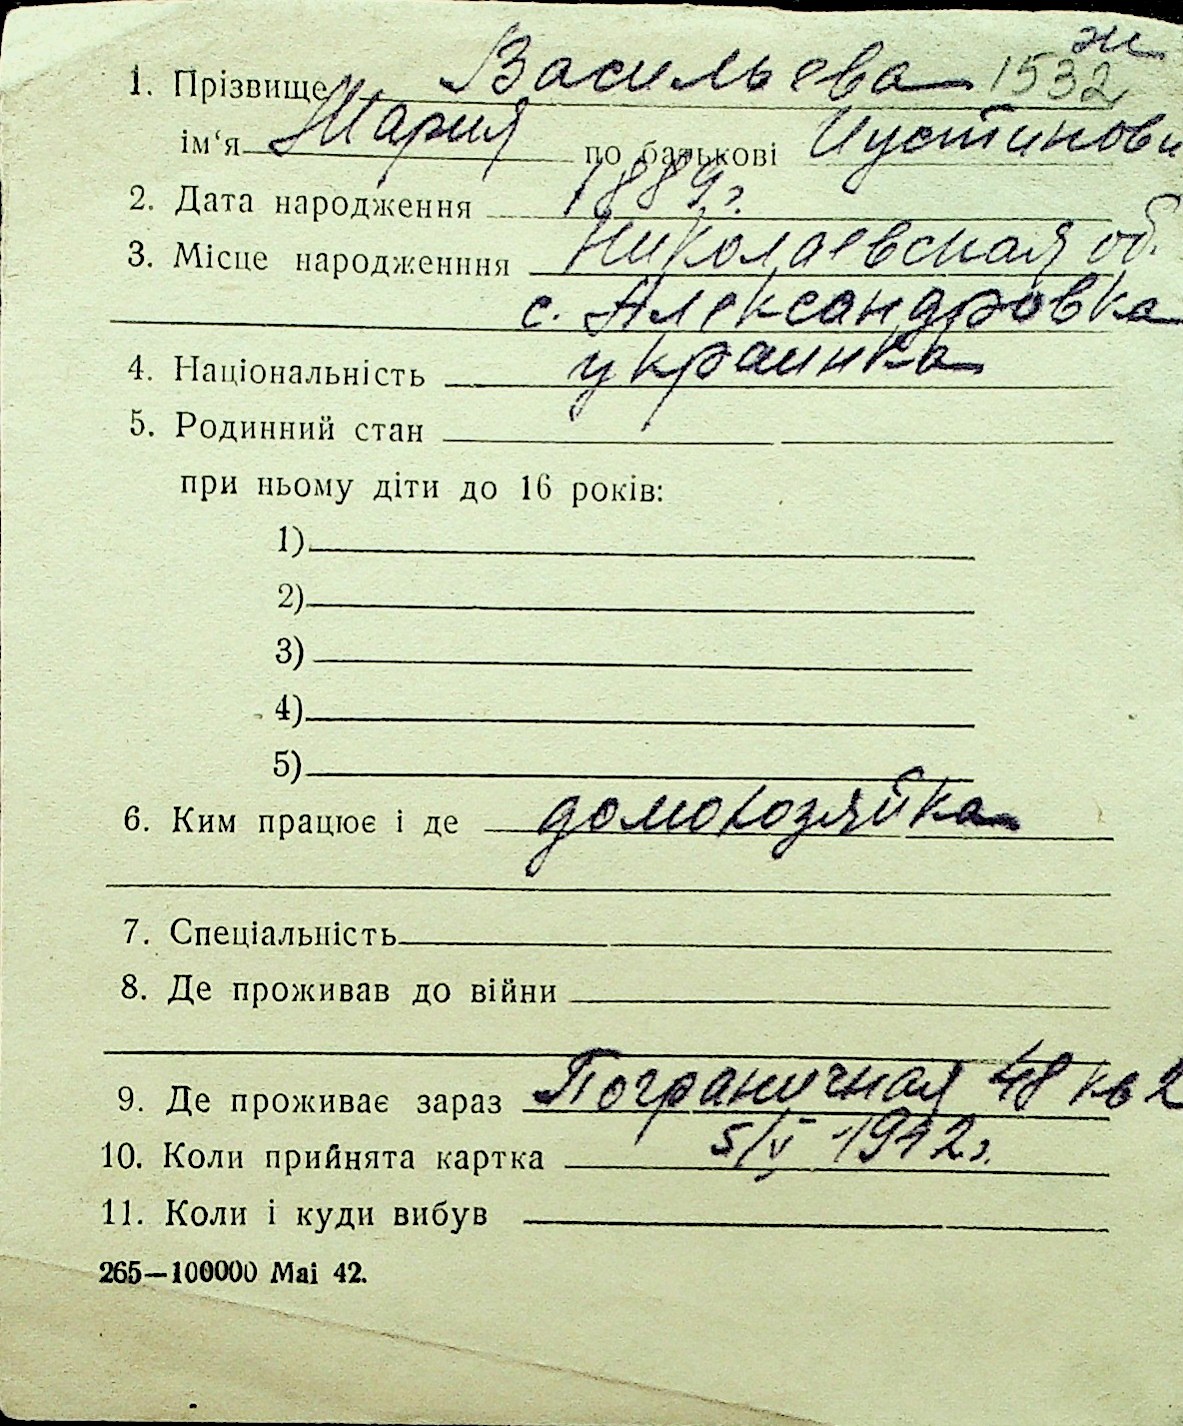 ж
1. Прізвище Васильева 1532
ім‘я Мария по батькові Иустинови
2. Дата народження 1889 г.
3. Місце народженння Николаевская об.
с. Александровка
4. Національність украинка
5. Родинний стан
при ньому діти до 16 років:
1)
2)
3)
4)
5)
6. Ким працює і де домохозяйка
7. Спеціальність
8. Де проживав до війни
9. Де проживає зараз Пограничная 48 кв 2
10. Коли прийнята картка 5/V 1942 г.
11. Коли і куди вибув
265—100000 Mai 42.